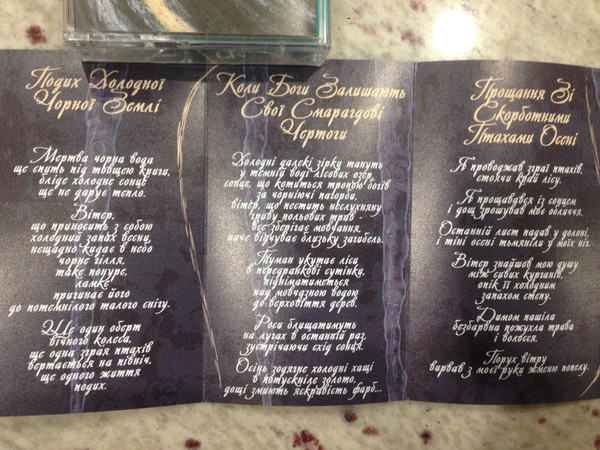 Подих Холодної
Чорної Землі
Мертва чорна вода
ще спить під товщею криги,
бліде холодне сонце
ще не дарує тепло.
Вітер,
що приносить з собою
холодний запах весни,
нещадно кидає в небо
чорне гілля,
таке похуре,
ламке
пригинає його
до потемнілого талого снігу.
Ще один оберт
вічного колеса,
ще одна зграя птахів
вертається на північ,
ще одного життя
подих.
Коли Боги Залишають
Свої Смарагдові
Чертоги
Холодні далекі зірки тануть
у темній воді лісових озер,
сонце, що котиться тропою богів
за чорніючі пагорби,
вітер, що пестить неслухняну
гриву польових трав -
все зберігає мовчання,
наче відчуває близьку загибель.
Туман укутає ліси
в передранкові сутінки,
підніматиметься
над мовчазною водою
до верховіття дерев.
Роси блищатимуть
на лугах в останній раз,
зустрічаючи схід сонця.
Осінь зодягне холодні хащі
в потускніле золото,
дощі змиють яскравість фарб...
Прощання Зі
Скорботними
Птахами Осені
Я проводжав зграї птахів,
стоячи край лісу.
Я прощавався із сонцем
і дощ зрошував моє обличчя.
Останній лист падав у долоні,
і тіні осені тьмяніли у моїх ніг.
Вітер знайшов мою душу
між сивих курганів,
опік її холодним
запахом степу.
Димом пашіла
безбарвна пожухла трава
і волосся.
Порух вітру
вирвав з моєї руки жменю попелу.